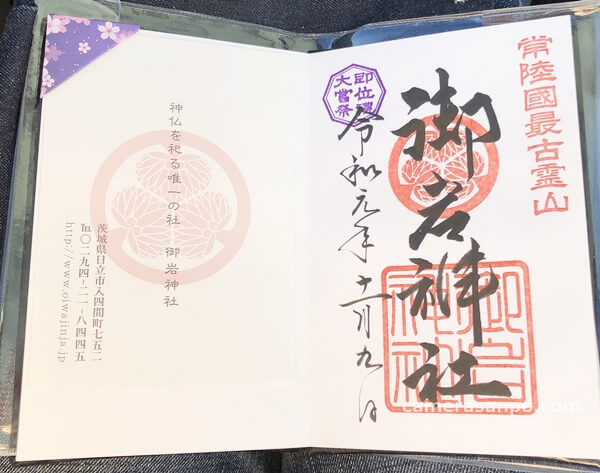 常陸國最古霊山
御岩神社
御岩神社
即位禮
大嘗祭
令和元年十一月九日
神仏を祀る唯一の社 御岩神社
茨城県日立市入四間町七五二
℡〇二九四-二一-八四四五
http://www.oiwajinja.jp
camerasanpo.com